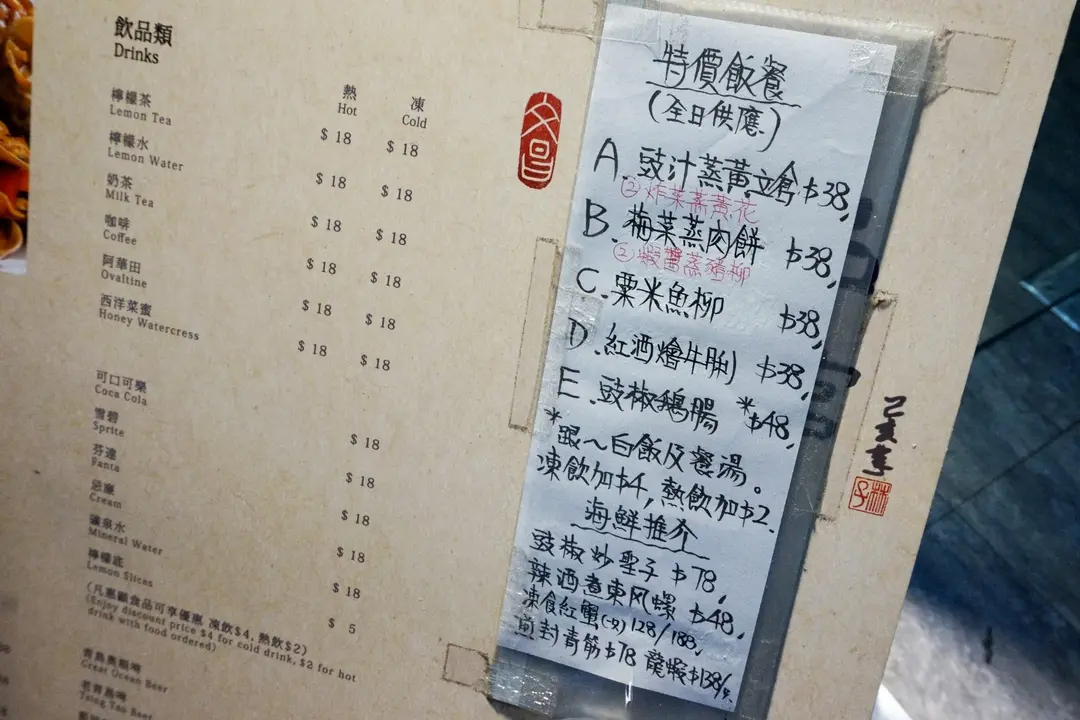 飲品類
Drinks
熱 凍
Hot Cold
檸檬茶
Lemon Tea $ 18 $ 18
檸檬水
Lemon Water $ 18 $ 18
奶茶
Milk Tea $ 18 $ 18
咖啡
Coffee $ 18 $ 18
阿華田
Ovaltine $ 18 $ 18
西洋菜蜜
Honey Watercress $ 18 $ 18
可口可樂
Coca Cola $ 18
雪碧
Sprite $ 18
芬達
Fanta $ 18
忌廉
Cream $ 18
礦泉水
Mineral Water $ 18
檸檬底
Lemon Slices $ 5
(凡惠顧食品可享優惠 凍飲$4, 熱飲$2)
(Enjoy discount price $4 for cold drink, $2 for hot
drink with food ordered)
青島奧順啤
Great Ocean Beer
老青島啤
Tsing Tao Beer
文昌
特價飯餐
(全日供應)
A.豉汁蒸黃立倉 $38,
②炸菜蒸黃花
B.梅菜蒸肉餅 $38,
②蝦醬蒸豬柳
C.粟米魚柳 $38,
D.紅酒燴牛脷 $38,
E.豉椒鵝腸 *$48,
*跟~白飯及餐湯。
凍飲加$4,熱飲加$2.
海鮮推介
豉椒炒聖子 $78,
辣酒煮東风螺 $48,
凍食紅蟹(一只)128/188,
封青筋$78 龍蝦$138/
己亥